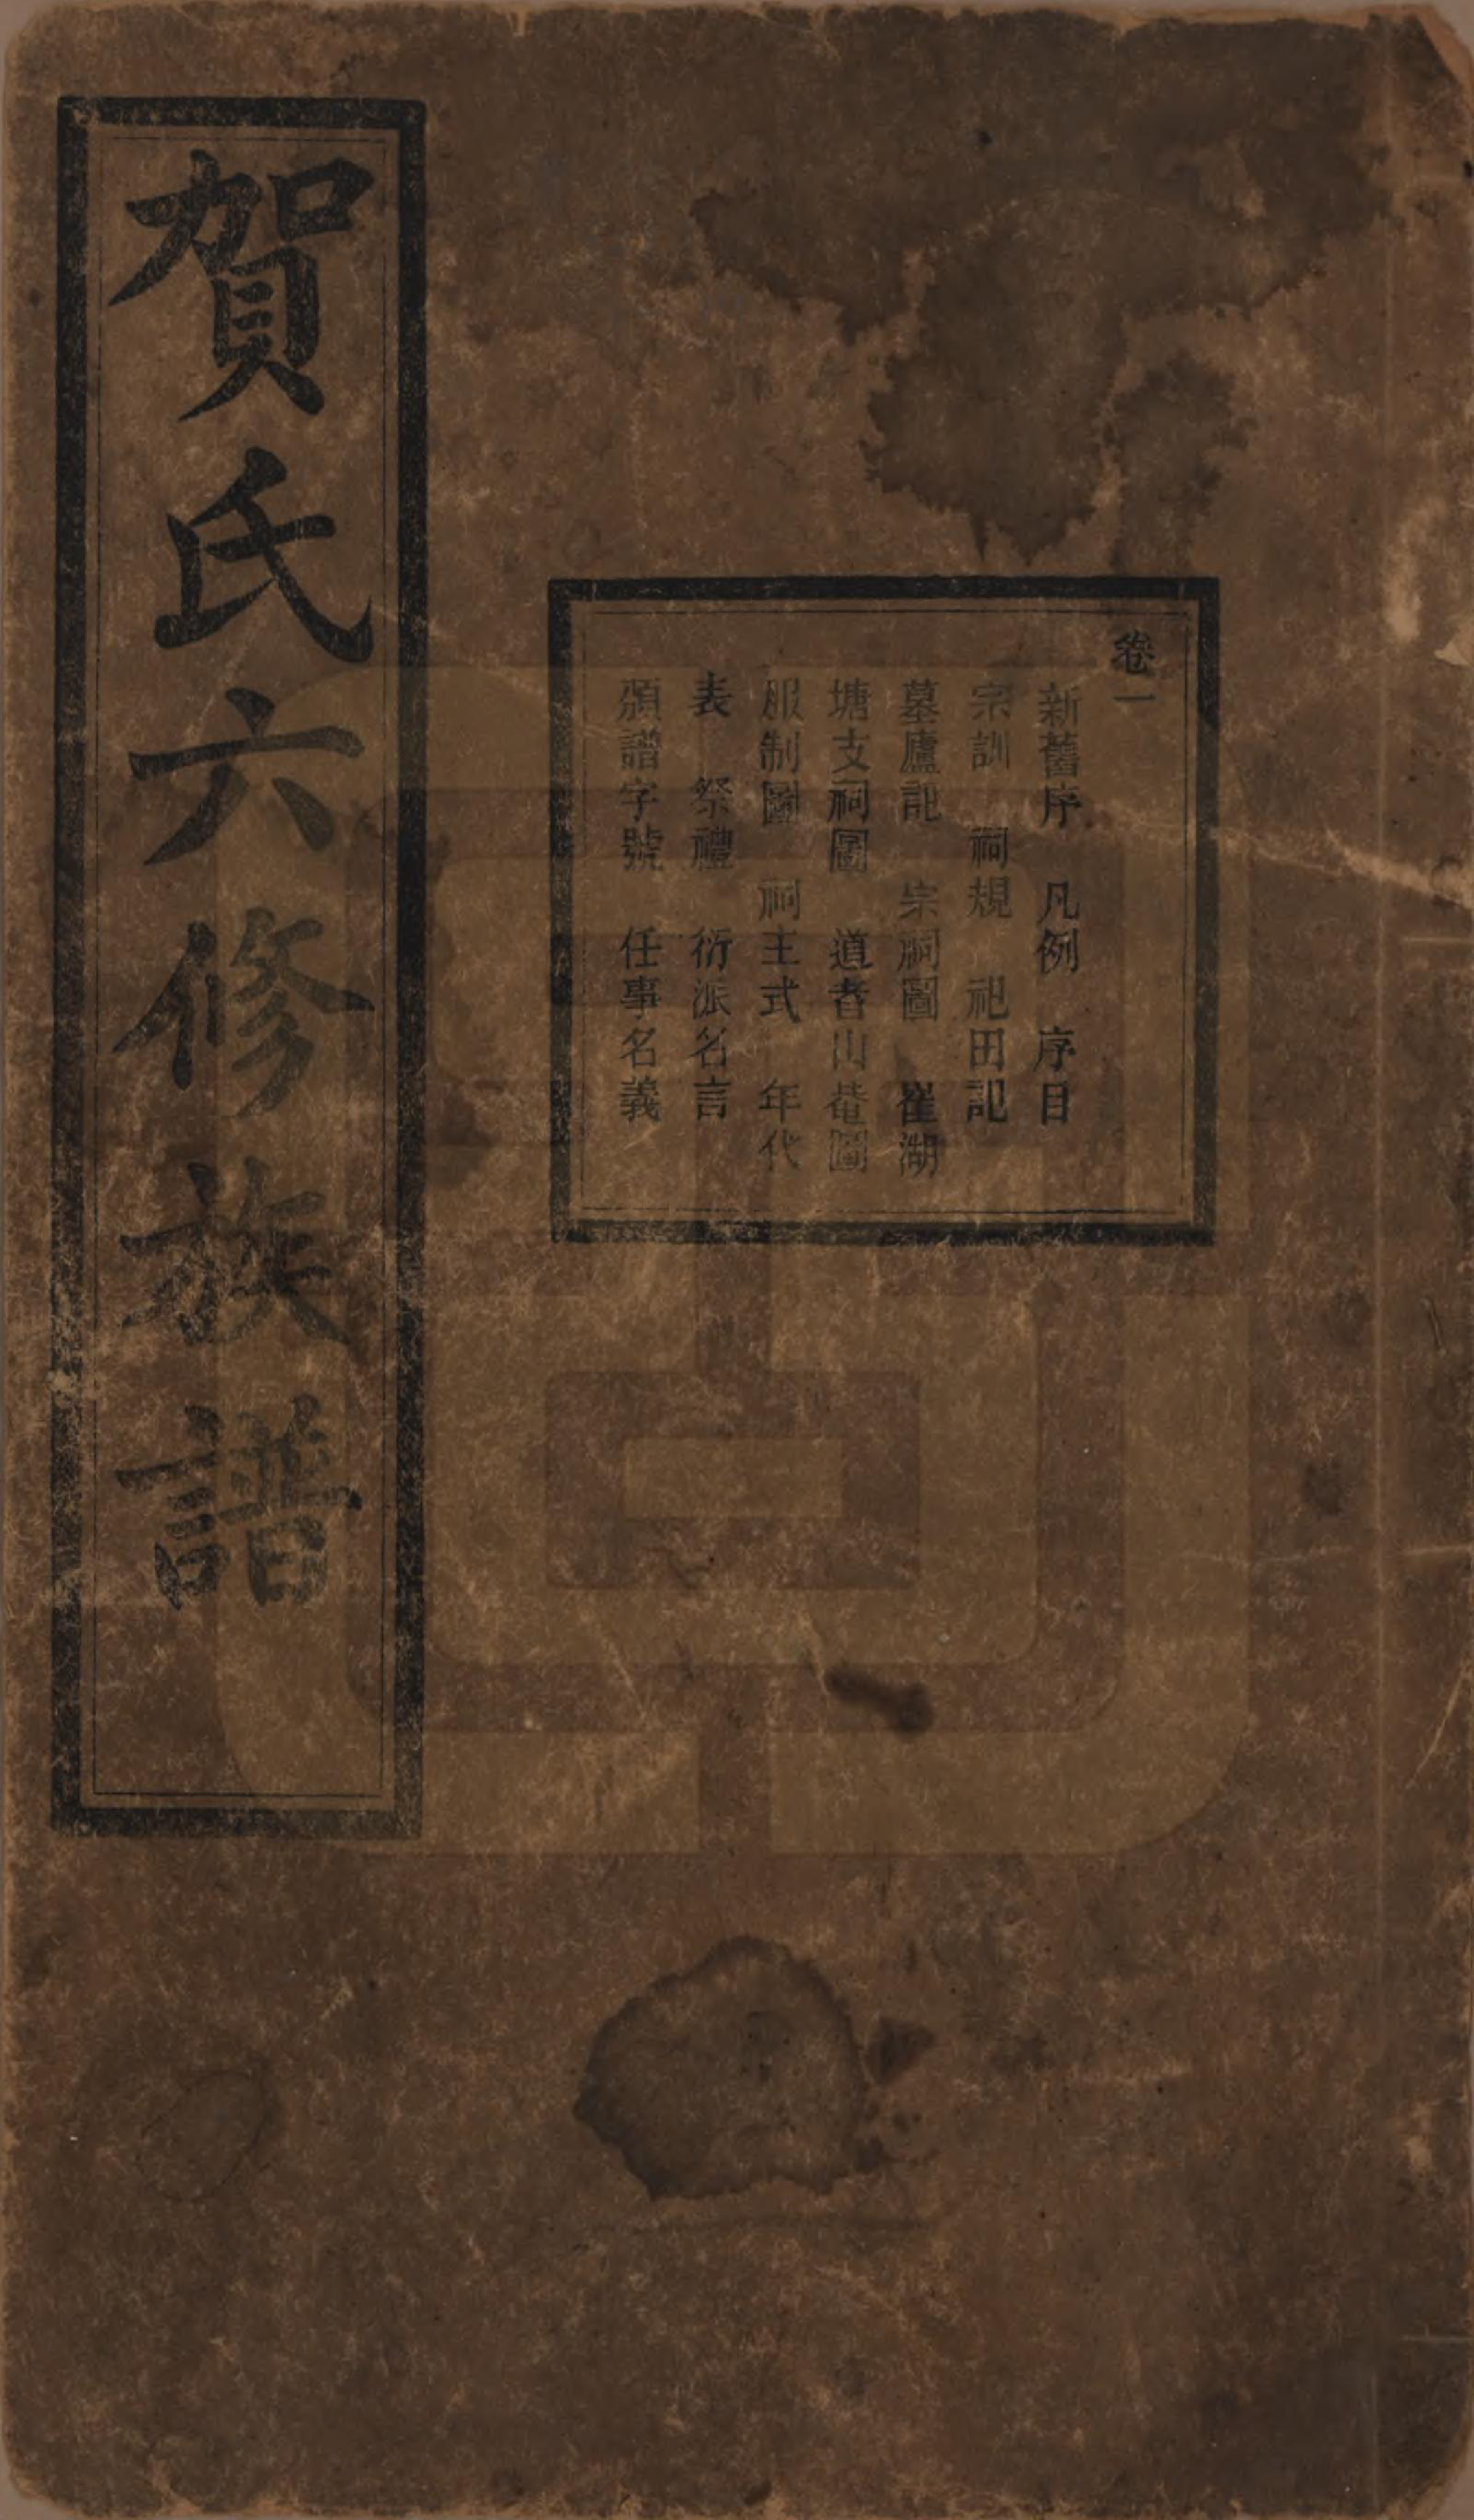 賀氏六修族譜
卷一
新舊序 凡例 序目
宗訓 祠規 祀田記
墓廬記 宗祠圖 崔湖
塘支祠圖 道者山菴圖
服制圖 祠主式 年代
表 祭禮 衍派名言
頒譜字號 任事名義